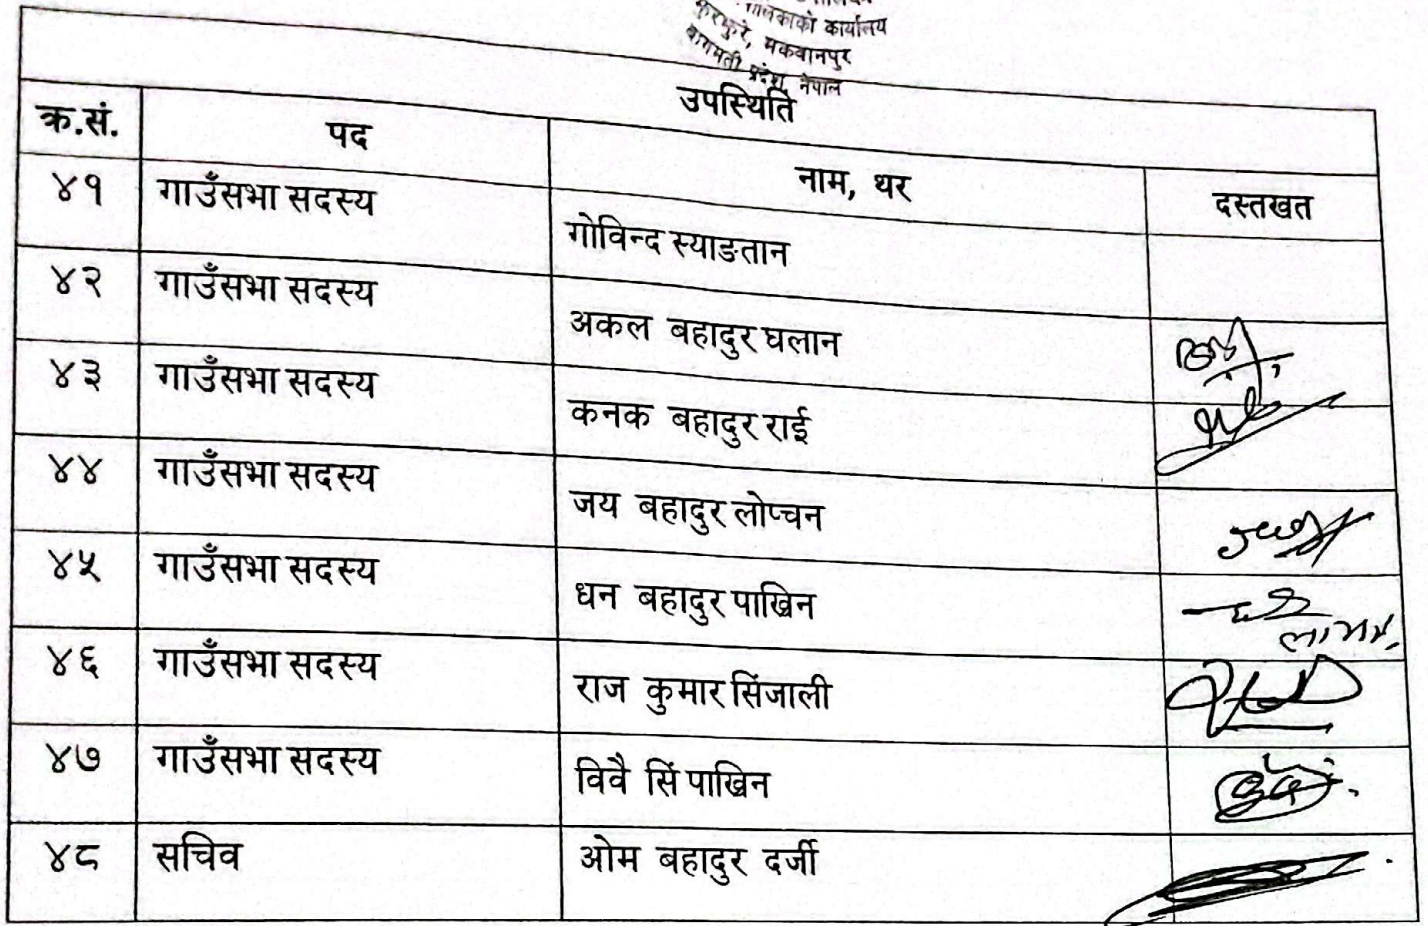 कार्यालय
मकवानपुर
बागमती प्रदेश, नेपाल
उपस्थिति
क्र.सं. पद नाम, थर दस्तखत
४१ गाउँसभा सदस्य गोविन्द स्याङतान
४२ गाउँसभा सदस्य अकल बहादुर घलान
४३ गाउँसभा सदस्य कनक बहादुर राई
४४ गाउँसभा सदस्य जय बहादुर लोप्चन
४५ गाउँसभा सदस्य धन बहादुर पाख्रिन
४६ गाउँसभा सदस्य राज कुमार सिंजाली
४७ गाउँसभा सदस्य विवै सिं पाख्रिन
४८ सचिव ओम बहादुर दर्जी